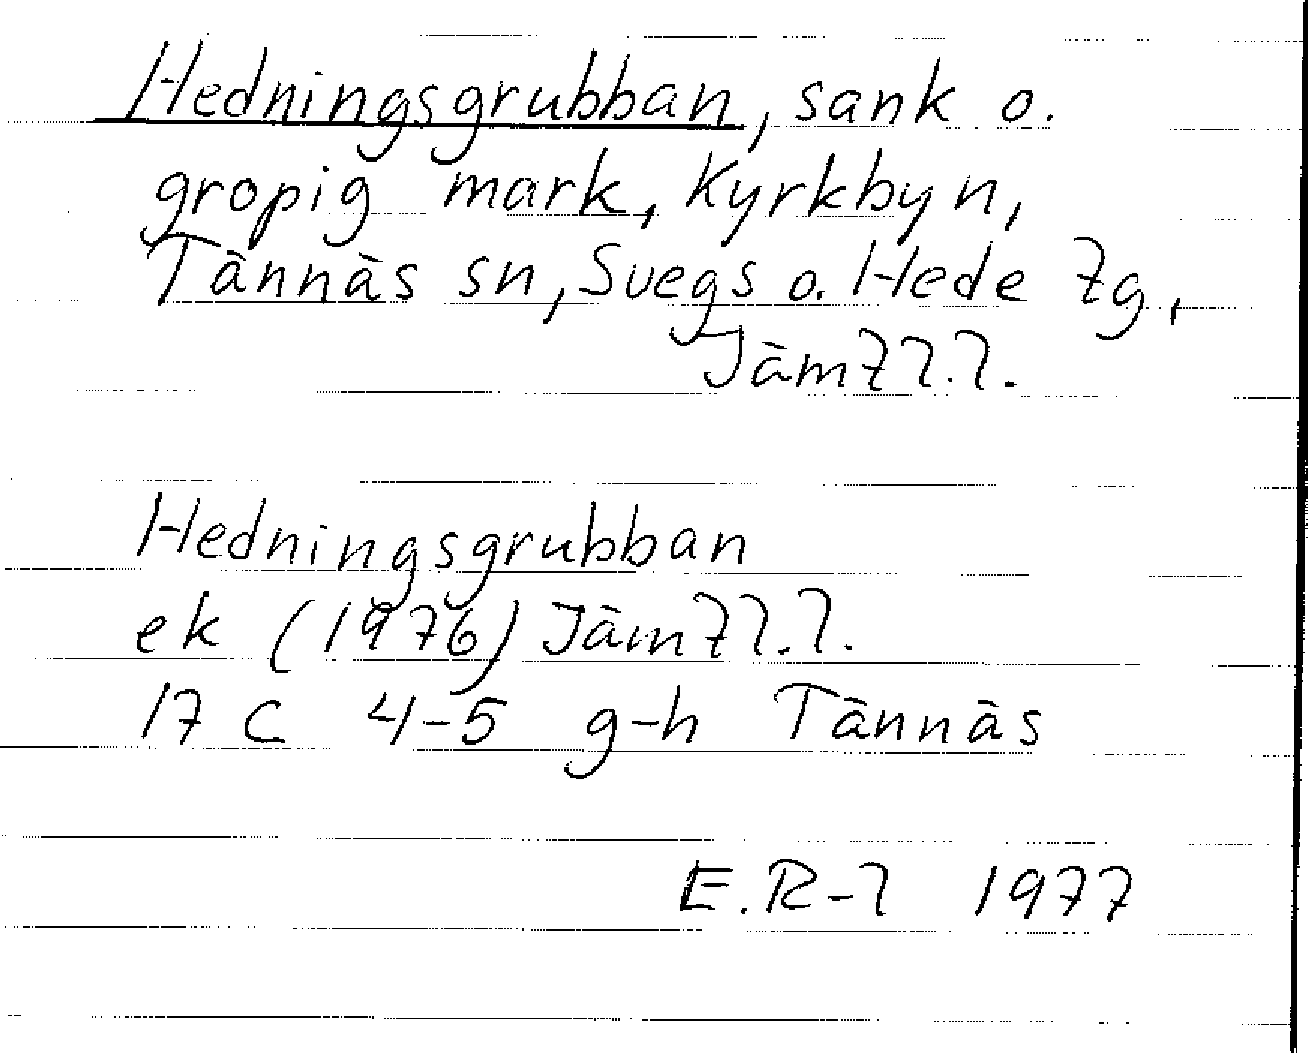 Hedningsgrubban, sank o.
gropig mark, Kyrkbyn,
Tännäs sn, Svegs o. Hede tg,
Jämtl.l.
Hedningsgrubban
ek (1976) Jämtl.l.
17 C 4-5 g-h Tännäs
E.R-l 1977